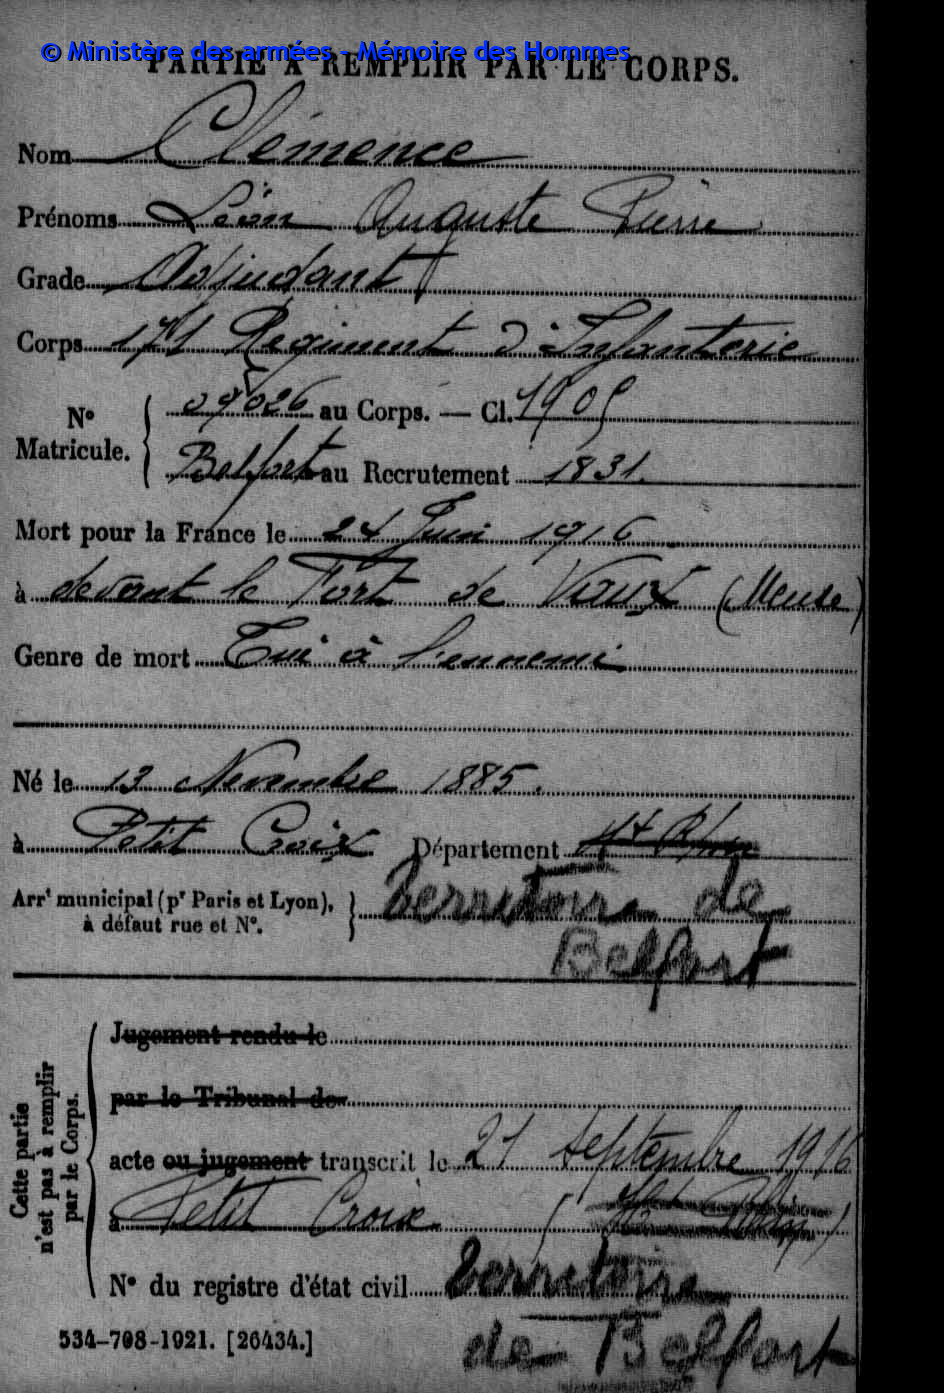 © Ministère des armées - Mémoire des Hommes
PARTIE À REMPLIR PAR LE CORPS.
Nom Clémence
Prénoms Léon Auguste Pierre
Grade Adjudant
Corps 171 Régiment d'Infanterie
N° Matricule. 09026 au Corps. — Cl. 1905
Belfort au Recrutement 1831.
Mort pour la France le 24 Juin 1916
à devant le Fort de Vaux (Meuse)
Genre de mort Tué à l'ennemi
Né le 13 Novembre 1885.
à Petit Croix Département Ht Rhin
Arrt municipal (pr Paris et Lyon), à défaut rue et N°. Territoire de
Belfort
Cette partie n'est pas à remplir par le Corps.
Jugement rendu le
par le Tribunal de
acte ou jugement transcrit le 21 septembre 1916
à Petit Croix (Ht Rhin)
N° du registre d'état civil Territoire
de Belfort
534-708-1921. [26434.]